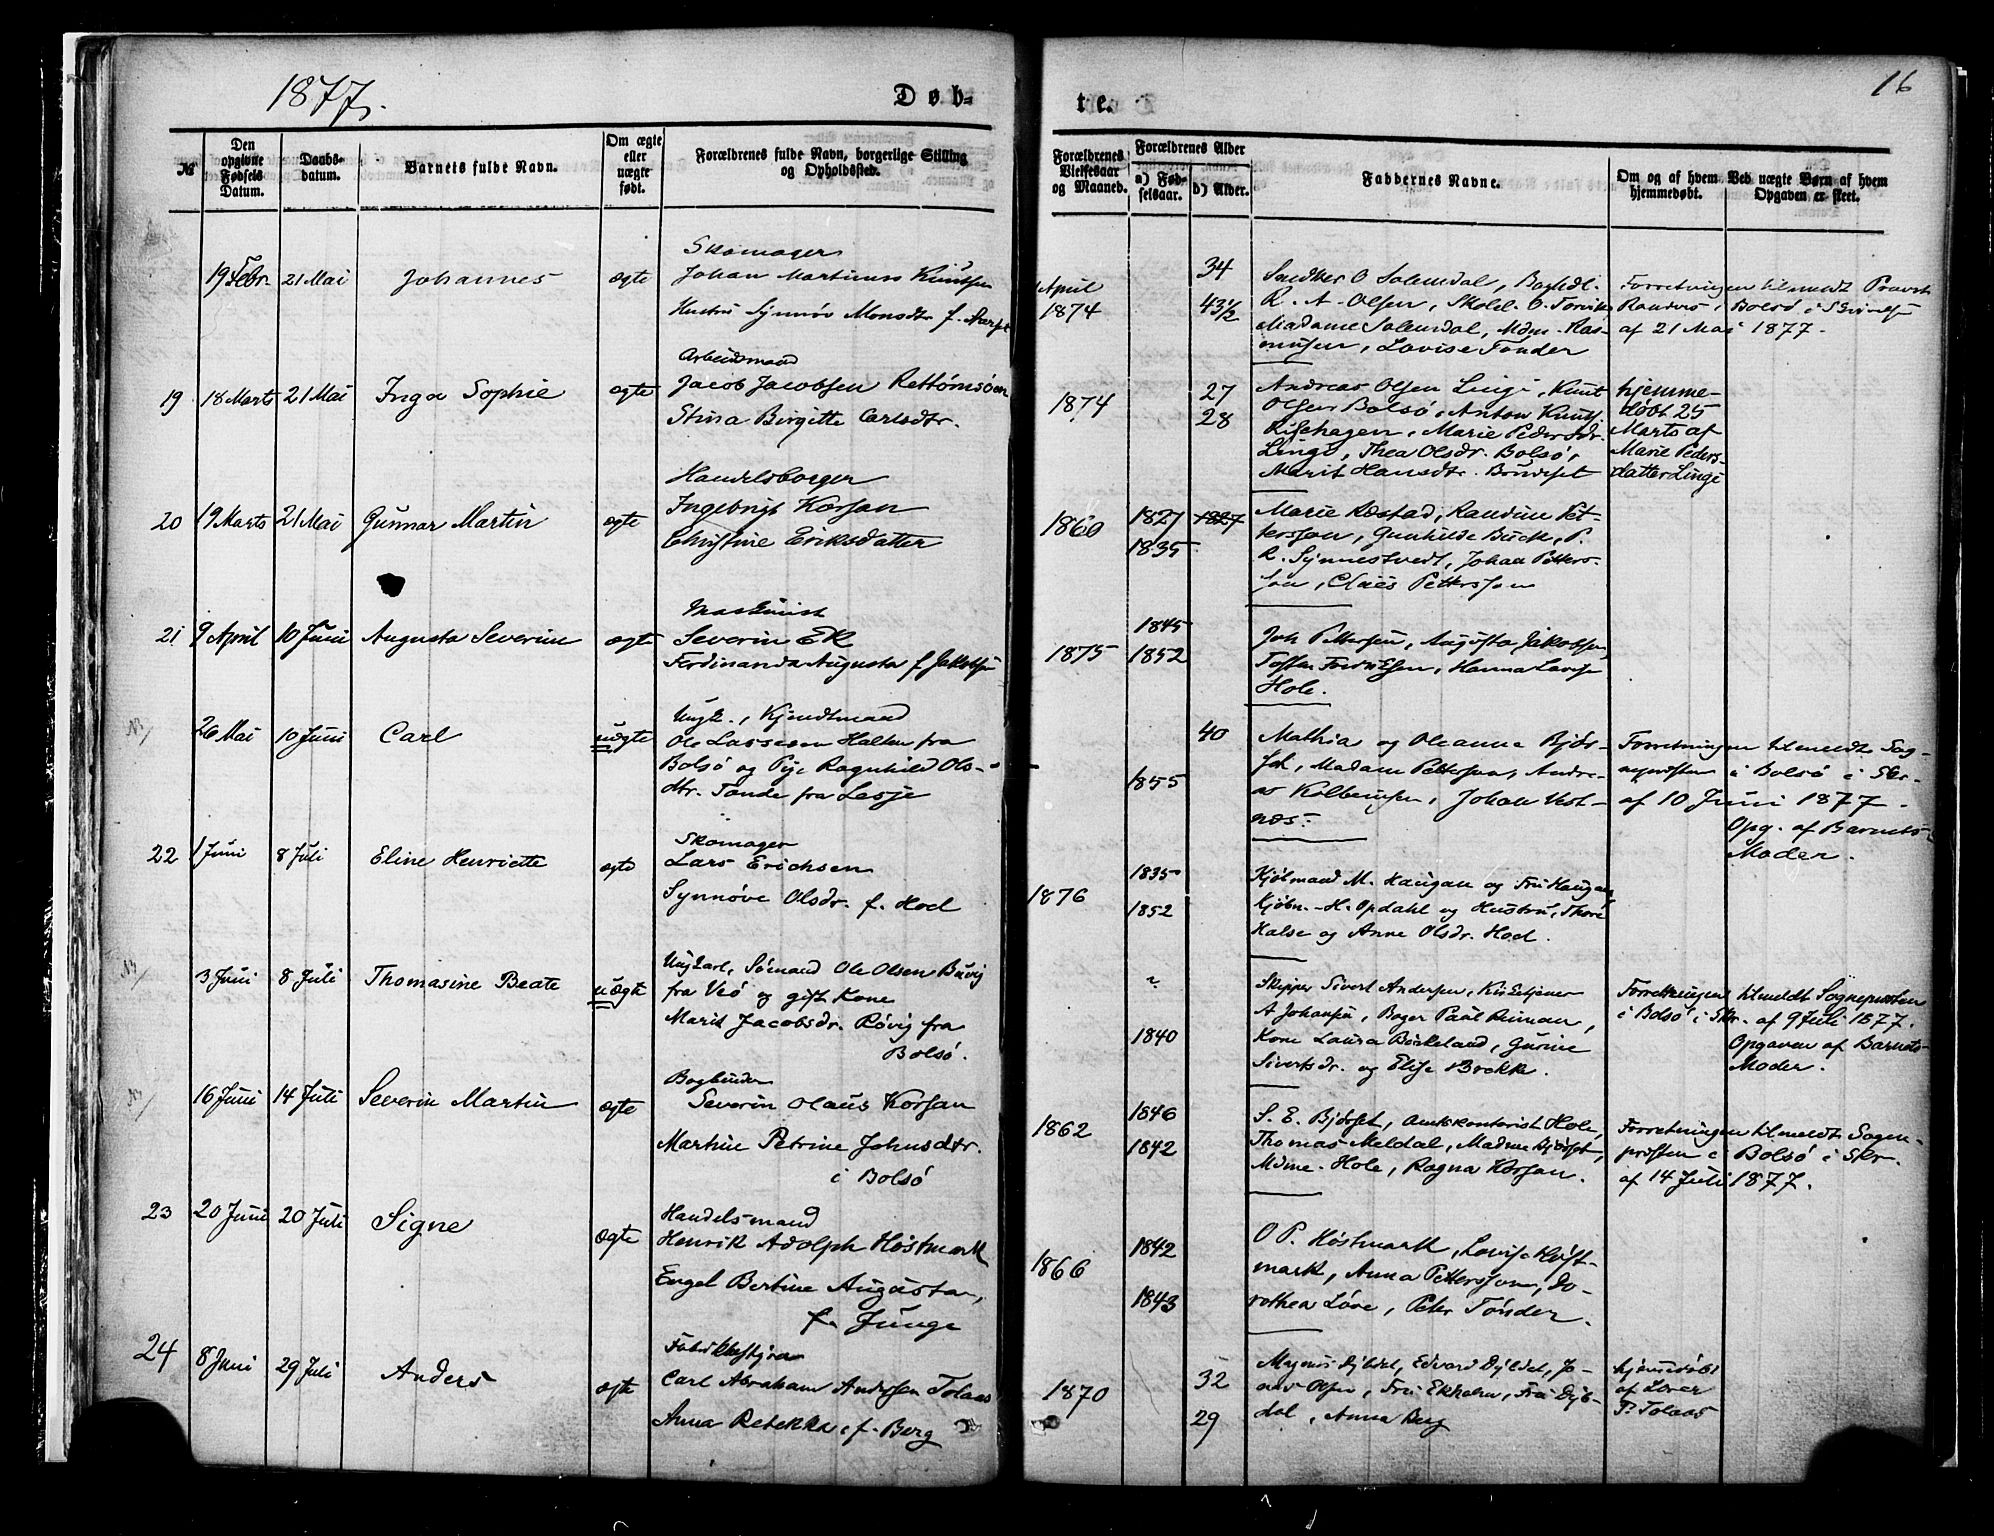 1877.
Døb-
te.
16
№
Den opgivne Fødsels Datum.
Daabs-datum.
Barnets fulde Navn.
Om ægte eller uægte født.
Forældrenes fulde Navn, borgerlige Stilling og Opholdssted.
Forældrenes Vielsesaar og Maaned.
Forældrenes Alder
a) Fød-selsaar.
b) Alder.
Faddernes Navne.
Om og af hvem hjemmedøbt.
Ved uægte Børn af hvem Opgaven er skeet.
19 Febr.
21 Mai
Johannes
ægte
Skomager
Johan Martinus Knutsen
Hustru Synnøv Monsdtr. f.
April
1874
34
43½
O Solemdal,
R. A. Olsen, O. Torvik
Madame Solemdal, Mdm. Ras-
musen, Lovise Tønder
Forretningen tilmeldt Provst
Randers i Bolsø i Skrivelse
af 21 Mai 1877.
19
18 Marts
21 Mai
Inga Sophie
ægte
Arbeidsmand
Jacob Jacobsen
Stina Birgitte Carlsdtr.
1874
27
28
Andreas Olsen Linge, Knut
Olsen Bolsø, Anton Knuts.
Marie Pedersdr.
Linge, Thea Olsdr. Bolsø,
Marit Hansdtr.
hjemme-
døbt 25
Marts af
Marie Peders-
datter Linge
20
19 Marts
21 Mai
Gunnar Martin
ægte
Handelsborger
Ingebrigt Korsan
Christine Eriksdatter
1860
1827
1835
1827
Marie Ræstad, Randine Pet-
tersson, Gunhilde Buck, P.
R. Synnestvedt, Johan Petters-
son, Claes Pettersson
21
9 April
10 Juni
Augusta Severine
ægte
Maskinist
Severin Ek
Ferdinanda Augusta f. Jakobsen
1875
1845
1852
Joh Pettersen, Augusta Jakobsen,
Hanna Lovise
Hole.
26 Mai
10 Juni
Carl
uægte
Ungk., Kjendtmand
Ole Lassesen Halten fra
Bolsø og Pige Ragnhild Ols-
dtr. Tande fra Lesje
40
1855
Mathia og Oleanna Bjør-
set, Madam Pettersson, Andre-
as Kolbeinsen, Johan Vest-
næs.
Forretningen tilmeldt Sog-
nepresten i Bolsø i Skr.
af 10 Juni 1877.
Opg. af Barnets
Moder.
22
1 Juni
8 Juli
Eline Henriette
ægte
Skomager
Lars Erichsen
Synnøve Olsdr. f. Hoel
1876
1835
1852
Kjøbmand M. Haugan og Fru Haugan
Kjøbm. H. Opdahl og Hustru, Thore
Halse og Anne Olsdr. Hoel.
3 Juni
8 Juli
Thomasine Beate
uægte
Ungkarl, Sømand Ole Olsen Buvig
fra Veø og gift Kone
Marit Jacobsdr. Røvig fra
Bolsø.
?
1840
Skipper Sivert Andersen, Kirketjener
A Johansen, Bager Paul,
Kone Laura Birkeland, Gurine
Sivertsdr. og Elise Brekk.
Forretningen tilmeldt Sognepresten
i Bolsø i Skr. af 9 Juli 1877.
Opgaven af Barnets
Moder.
16 Juni
14 Juli
Severin Martin
ægte
Bogbinder
Severin Olaus Korsan
Martine Petrine Johnsdtr.
i Bolsø
1862
1846
1842
S. E. Bjørset, Amtskontorist Hole,
Thomas Meldal, Madme Bjørset,
Mdme. Hole, Ragna Korsan.
Forretningen tilmeldt Sogne-
presten i Bolsø i Skr.
af 14 Juli 1877.
23
20 Juni
20 Juli
Signe
ægte
Handelsmand
Henrik Adolph Høstmark
Engel Bertine Augusta,
f. Junge
1866
1842
1843
O P. Høstmark, Lovise Høst-
mark, Anna Pettersson, Do-
rothea Løve, Peter Tønder.
24
8 Juni
29 Juli
Anders
ægte
Carl Abraham Anderssen Tolaas
Anna Rebekka f. Berg
1870
32
29
Magnus Dybdal, Edvard Dybdal, Jo-
nas Olsen, Fru Ekholm, Fru Dyb-
dal, Anna Berg
hjemmedøbt
af
P. Tolaas